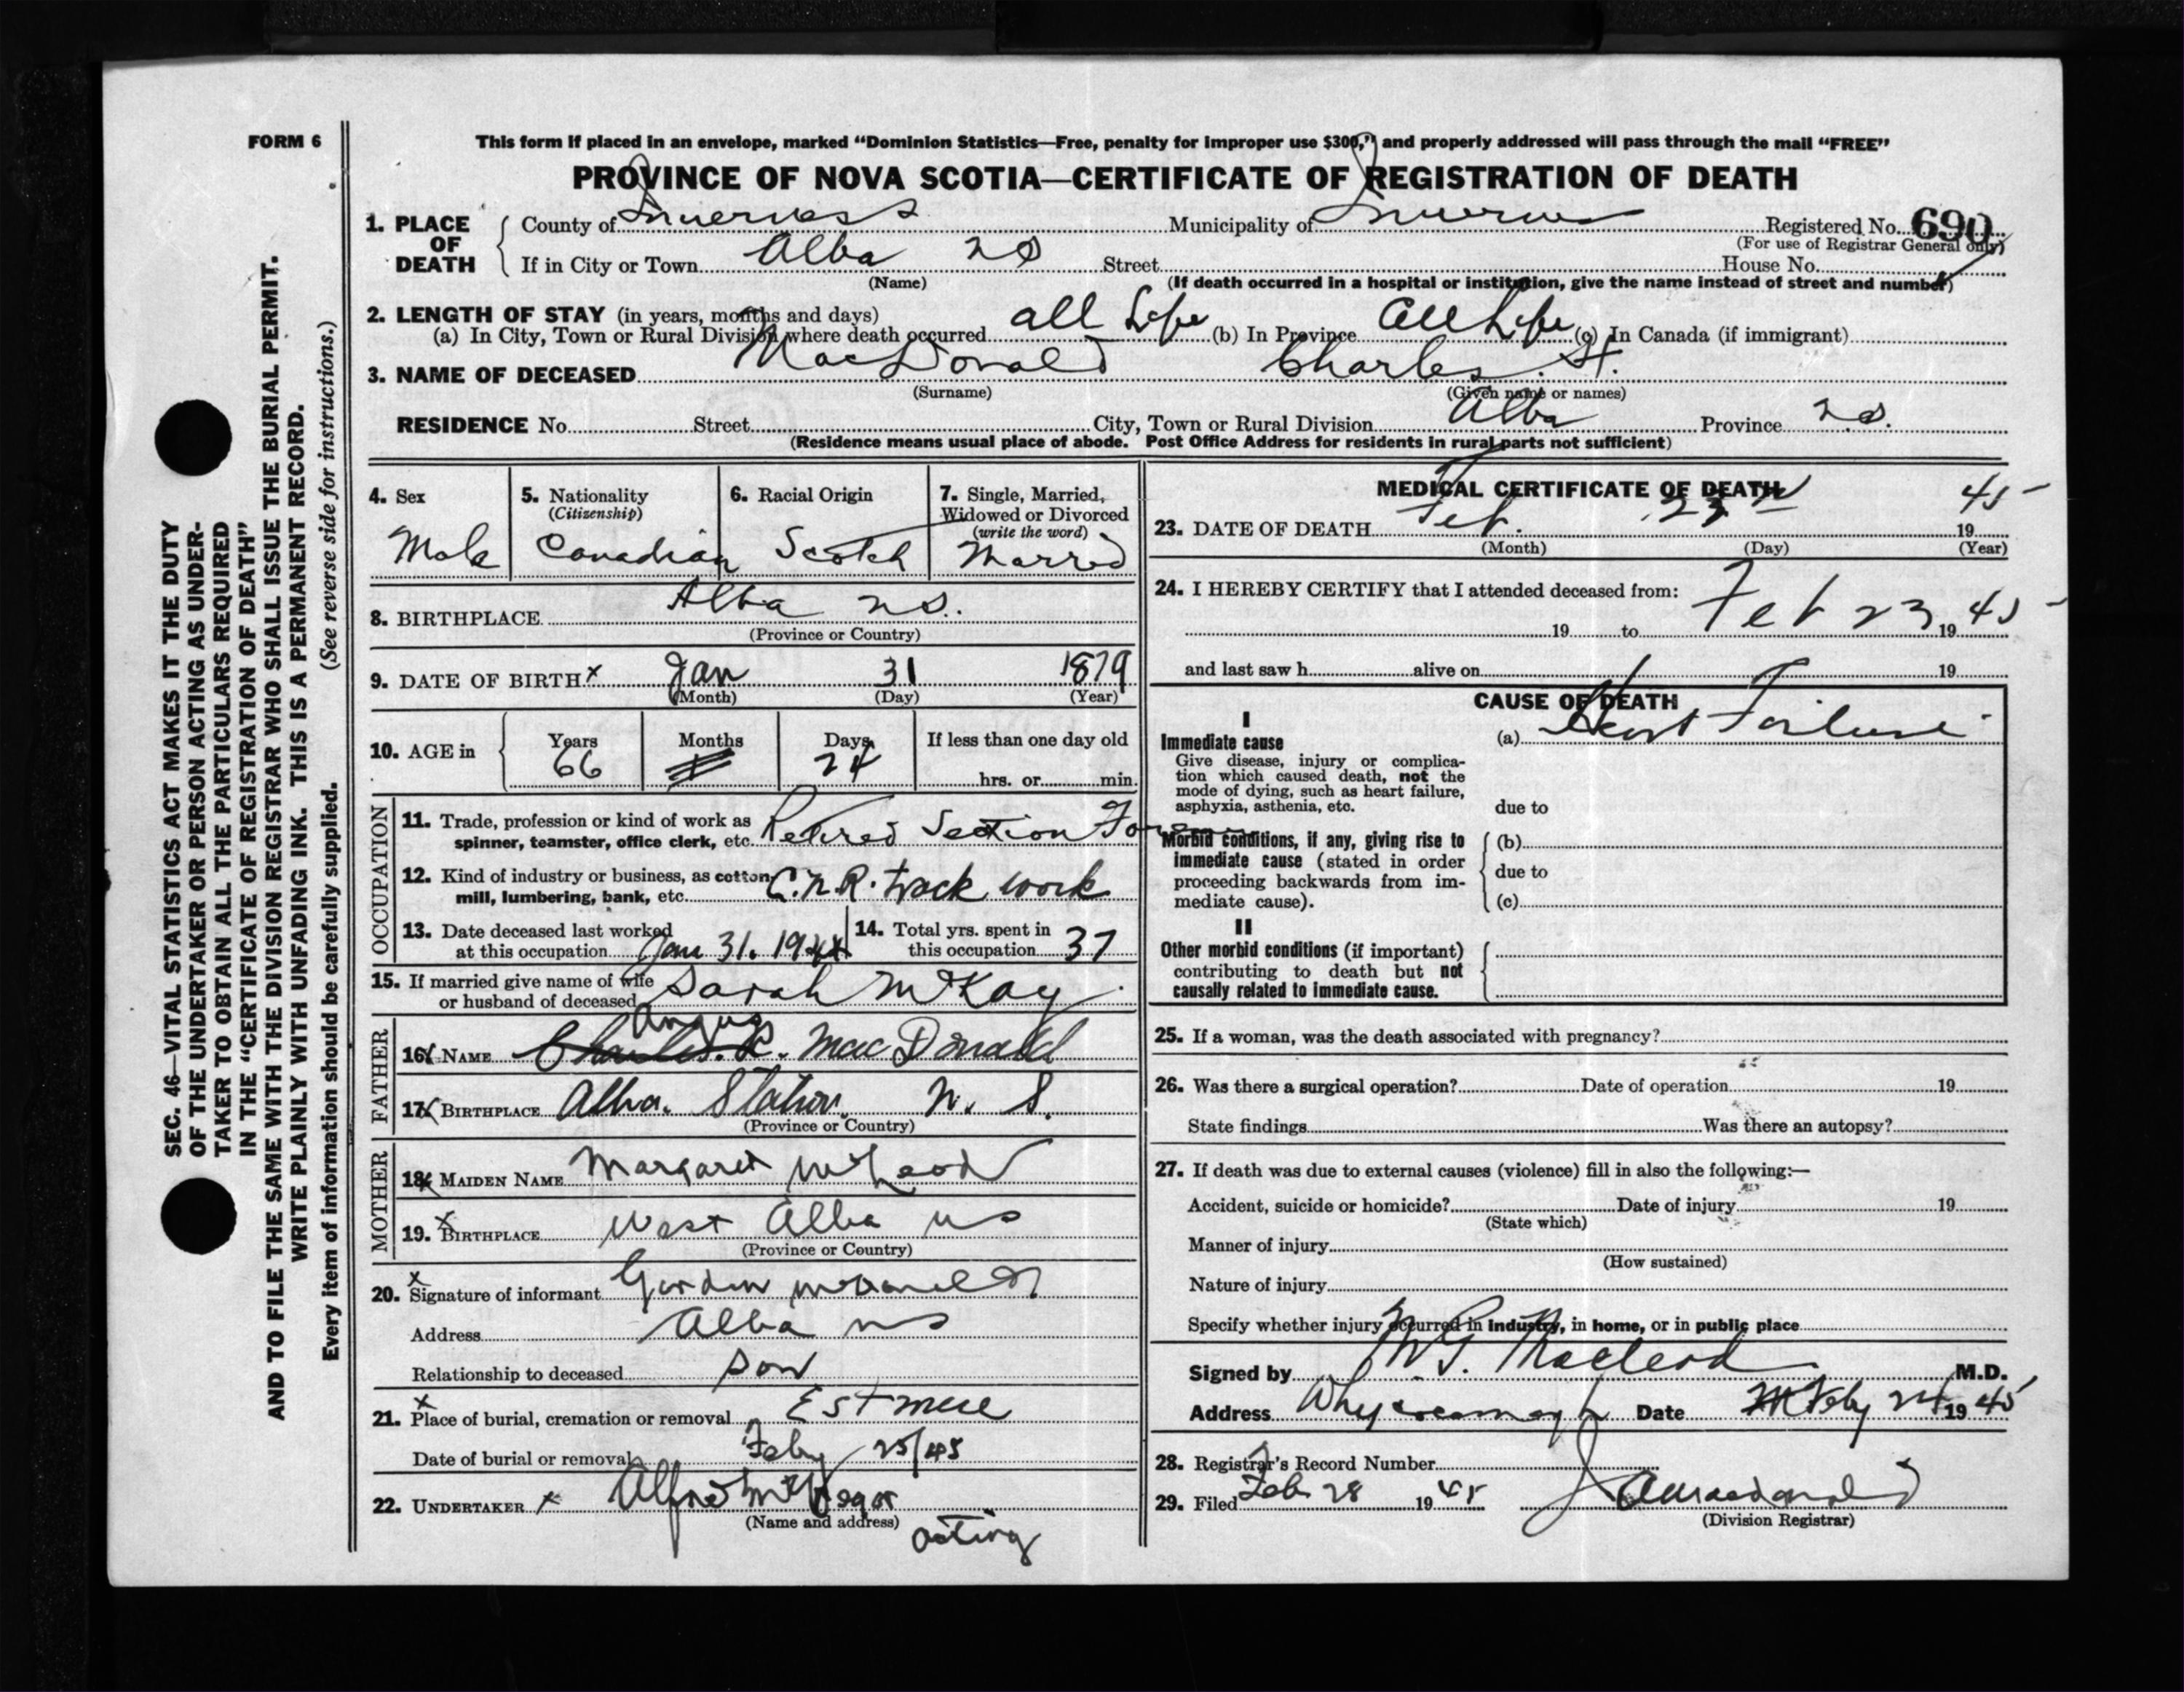 FORM 6
This form if placed in an envelope, marked “Dominion Statistics—Free, penalty for improper use $300,” and properly addressed will pass through the mail “FREE”
PROVINCE OF NOVA SCOTIA—CERTIFICATE OF REGISTRATION OF DEATH
1. PLACE OF DEATH County of Inverness Municipality of Inverness Registered No. 690
(For use of Registrar General only)
If in City or Town Alba NS Street House No.
(Name) (If death occurred in a hospital or institution, give the name instead of street and number)
2. LENGTH OF STAY (in years, months and days)
(a) In City, Town or Rural Division where death occurred all Life (b) In Province all Life (c) In Canada (if immigrant)
3. NAME OF DECEASED MacDonald Charles H.
(Surname) (Given name or names)
RESIDENCE No. Street City, Town or Rural Division Alba Province N.S.
(Residence means usual place of abode. Post Office Address for residents in rural parts not sufficient)
4. Sex 5. Nationality 6. Racial Origin 7. Single, Married,
(Citizenship) Widowed or Divorced
(write the word)
Male Canadian Scotch Married
8. BIRTHPLACE Alba NS.
(Province or Country)
9. DATE OF BIRTH x Jan 31 1879
(Month) (Day) (Year)
10. AGE in Years Months Days If less than one day old
66 24 hrs. or min.
OCCUPATION
11. Trade, profession or kind of work as
spinner, teamster, office clerk, etc. Retired Section Foreman
12. Kind of industry or business, as cotton
mill, lumbering, bank, etc. C.N.R. track work
13. Date deceased last worked
at this occupation Jan 31. 1944
14. Total yrs. spent in
this occupation 37
15. If married give name of wife
or husband of deceased Sarah McKay
FATHER
Angus
16. NAME MacDonald
17. BIRTHPLACE Alba. Station N. S.
(Province or Country)
MOTHER
18. MAIDEN NAME Margaret McLeod
19. x BIRTHPLACE West Alba NS
(Province or Country)
x
20. Signature of informant Gordon McDonald
Address Alba NS
Relationship to deceased son
x
21. Place of burial, cremation or removal Estmere
Date of burial or removal Feby 25/45
22. UNDERTAKER x Alfred McGregor
(Name and address)
acting
MEDICAL CERTIFICATE OF DEATH
23. DATE OF DEATH Feb. 23rd 1945
(Month) (Day) (Year)
24. I HEREBY CERTIFY that I attended deceased from:
19 to Feb 23 1945
and last saw h alive on 19
CAUSE OF DEATH
I
Immediate cause (a) Heart Failure
Give disease, injury or complica-
tion which caused death, not the
mode of dying, such as heart failure,
asphyxia, asthenia, etc. due to
Morbid conditions, if any, giving rise to (b)
immediate cause (stated in order
proceeding backwards from im- due to
mediate cause). (c)
II
Other morbid conditions (if important)
contributing to death but not
causally related to immediate cause.
25. If a woman, was the death associated with pregnancy?
26. Was there a surgical operation? Date of operation 19
State findings Was there an autopsy?
27. If death was due to external causes (violence) fill in also the following:—
Accident, suicide or homicide? Date of injury 19
(State which)
Manner of injury
(How sustained)
Nature of injury
Specify whether injury occurred in industry, in home, or in public place
Signed by Macleod M.D.
Address Whycocomagh Date Feby 24 1945
28. Registrar's Record Number
29. Filed Feb 28 1945
(Division Registrar)
SEC. 46—VITAL STATISTICS ACT MAKES IT THE DUTY
OF THE UNDERTAKER OR PERSON ACTING AS UNDER-
TAKER TO OBTAIN ALL THE PARTICULARS REQUIRED
IN THE “CERTIFICATE OF REGISTRATION OF DEATH”
AND TO FILE THE SAME WITH THE DIVISION REGISTRAR WHO SHALL ISSUE THE BURIAL PERMIT.
WRITE PLAINLY WITH UNFADING INK. THIS IS A PERMANENT RECORD.
Every item of information should be carefully supplied. (See reverse side for instructions.)